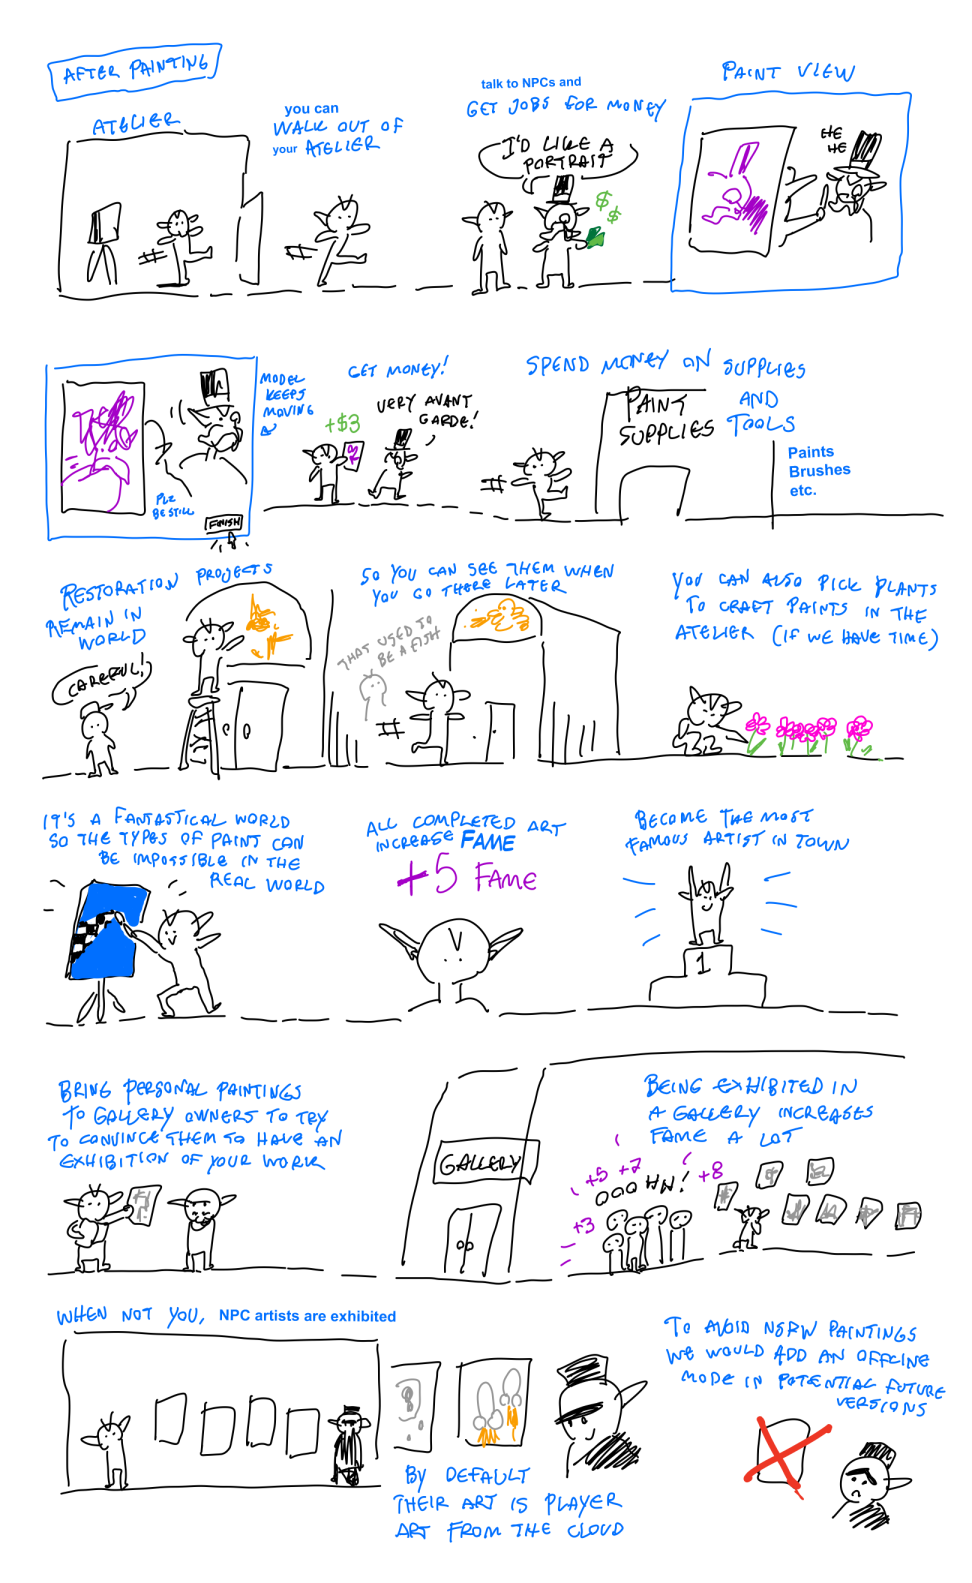 AFTER PAINTING
ATELIER
you can
WALK OUT OF
your ATELIER
talk to NPCs and
GET JOBS FOR MONEY
I'D LIKE A
PORTRAIT
$
$
PAINT VIEW
HE
HE
MODEL
KEEPS
MOVING
PLZ
BE STILL
FINISH
GET MONEY!
+$3
VERY AVANT
GARDE!
SPEND MONEY ON SUPPLIES
AND
TOOLS
PAINT
SUPPLIES
Paints
Brushes
etc.
RESTORATION PROJECTS
REMAIN IN
WORLD
CAREFUL!
SO YOU CAN SEE THEM WHEN
YOU GO THERE LATER
THAT USED TO
BE A FISH
YOU CAN ALSO PICK PLANTS
TO CRAFT PAINTS IN THE
ATELIER (IF WE HAVE TIME)
IT'S A FANTASTICAL WORLD
SO THE TYPES OF PAINT CAN
BE IMPOSSIBLE IN THE
REAL WORLD
ALL COMPLETED ART
INCREASE FAME
+5 FAME
BECOME THE MOST
FAMOUS ARTIST IN TOWN
1
BRING PERSONAL PAINTINGS
TO GALLERY OWNERS TO TRY
TO CONVINCE THEM TO HAVE AN
EXHIBITION OF YOUR WORK
GALLERY
BEING EXHIBITED IN
A GALLERY INCREASES
FAME A LOT
+5 +7
+8
OOOHH!
+3
WHEN NOT YOU, NPC artists are exhibited
BY DEFAULT
THEIR ART IS PLAYER
ART FROM THE CLOUD
TO AVOID NSFW PAINTINGS
WE WOULD ADD AN OFFLINE
MODE IN POTENTIAL FUTURE
VERSIONS